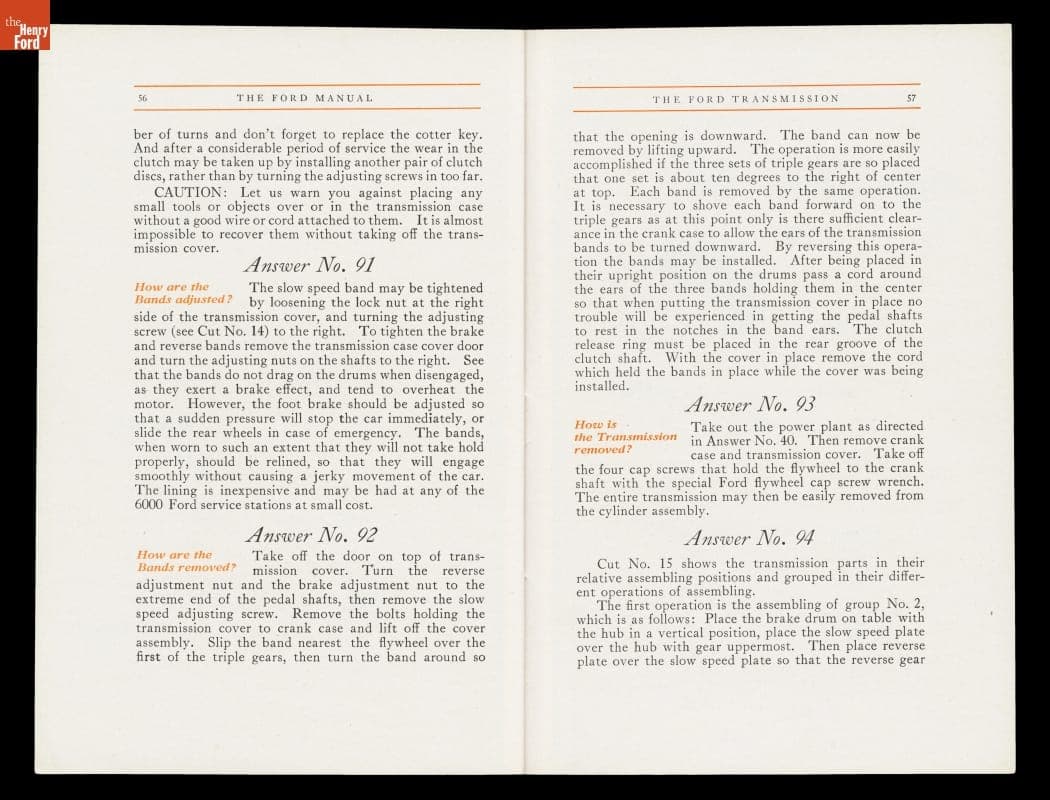 the
Henry
Ford
56 THE FORD MANUAL
ber of turns and don't forget to replace the cotter key.
And after a considerable period of service the wear in the
clutch may be taken up by installing another pair of clutch
discs, rather than by turning the adjusting screws in too far.
CAUTION: Let us warn you against placing any
small tools or objects over or in the transmission case
without a good wire or cord attached to them. It is almost
impossible to recover them without taking off the trans-
mission cover.
Answer No. 91
How are the
Bands adjusted?
The slow speed band may be tightened
by loosening the lock nut at the right
side of the transmission cover, and turning the adjusting
screw (see Cut No. 14) to the right. To tighten the brake
and reverse bands remove the transmission case cover door
and turn the adjusting nuts on the shafts to the right. See
that the bands do not drag on the drums when disengaged,
as they exert a brake effect, and tend to overheat the
motor. However, the foot brake should be adjusted so
that a sudden pressure will stop the car immediately, or
slide the rear wheels in case of emergency. The bands,
when worn to such an extent that they will not take hold
properly, should be relined, so that they will engage
smoothly without causing a jerky movement of the car.
The lining is inexpensive and may be had at any of the
6000 Ford service stations at small cost.
Answer No. 92
How are the
Bands removed?
Take off the door on top of trans-
mission cover. Turn the reverse
adjustment nut and the brake adjustment nut to the
extreme end of the pedal shafts, then remove the slow
speed adjusting screw. Remove the bolts holding the
transmission cover to crank case and lift off the cover
assembly. Slip the band nearest the flywheel over the
first of the triple gears, then turn the band around so
THE FORD TRANSMISSION 57
that the opening is downward. The band can now be
removed by lifting upward. The operation is more easily
accomplished if the three sets of triple gears are so placed
that one set is about ten degrees to the right of center
at top. Each band is removed by the same operation.
It is necessary to shove each band forward on to the
triple gears as at this point only is there sufficient clear-
ance in the crank case to allow the ears of the transmission
bands to be turned downward. By reversing this opera-
tion the bands may be installed. After being placed in
their upright position on the drums pass a cord around
the ears of the three bands holding them in the center
so that when putting the transmission cover in place no
trouble will be experienced in getting the pedal shafts
to rest in the notches in the band ears. The clutch
release ring must be placed in the rear groove of the
clutch shaft. With the cover in place remove the cord
which held the bands in place while the cover was being
installed.
Answer No. 93
How is
the Transmission
removed?
Take out the power plant as directed
in Answer No. 40. Then remove crank
case and transmission cover. Take off
the four cap screws that hold the flywheel to the crank
shaft with the special Ford flywheel cap screw wrench.
The entire transmission may then be easily removed from
the cylinder assembly.
Answer No. 94
Cut No. 15 shows the transmission parts in their
relative assembling positions and grouped in their differ-
ent operations of assembling.
The first operation is the assembling of group No. 2,
which is as follows: Place the brake drum on table with
the hub in a vertical position, place the slow speed plate
over the hub with gear uppermost. Then place reverse
plate over the slow speed plate so that the reverse gear